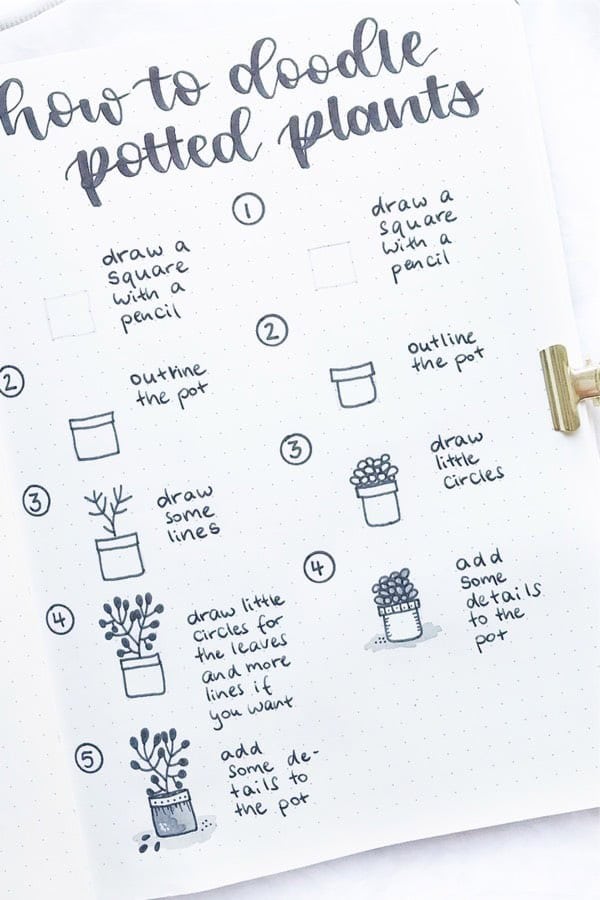 how to doodle
potted plants
draw a
square
with a
pencil
2
outline
the pot
3
draw
some
lines
4
draw little
circles for
the leaves
and more
lines if
you want
5
add
some de-
tails to
the pot
1
draw a
square
with a
pencil
2
outline
the pot
3
draw
little
circles
4
add
some
details
to the
pot